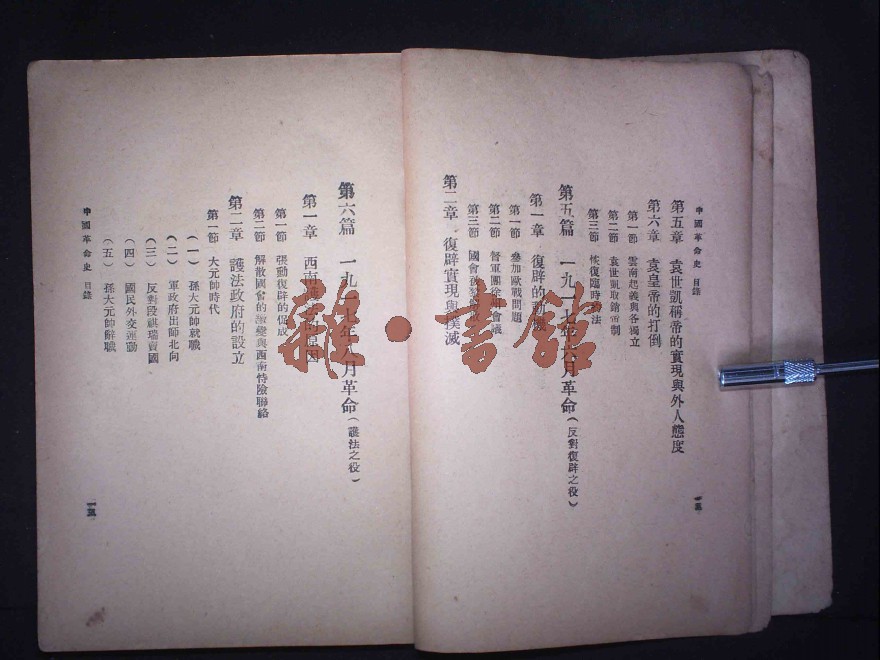 中國革命史 目錄
第五章 袁世凱稱帝的實現與外人態度
第六章 袁皇帝的打倒
第一節 雲南起義與各獨立
第二節 袁世凱取銷帝制
第三節 恢復臨時約法
第五篇 一九一七年六月革命（反對復辟之役）
第一章 復辟的動機
第一節 參加歐戰問題
第二節 督軍團徐州會議
第三節 國會
第二章 復辟實現與撲滅
第六篇 一九一 年八月革命（護法之役）
第一章 西南 的原因
第一節 張勳復辟的促成
第二節 解散國會的激變與西南特險聯絡
第二章 護法政府的設立
第一節 大元帥時代
（一） 孫大元帥就職
（二） 軍政府出師北向
（三） 反對段祺瑞賣國
（四） 國民外交運動
（五） 孫大元帥辭職
中國革命史 目錄
雜·書館